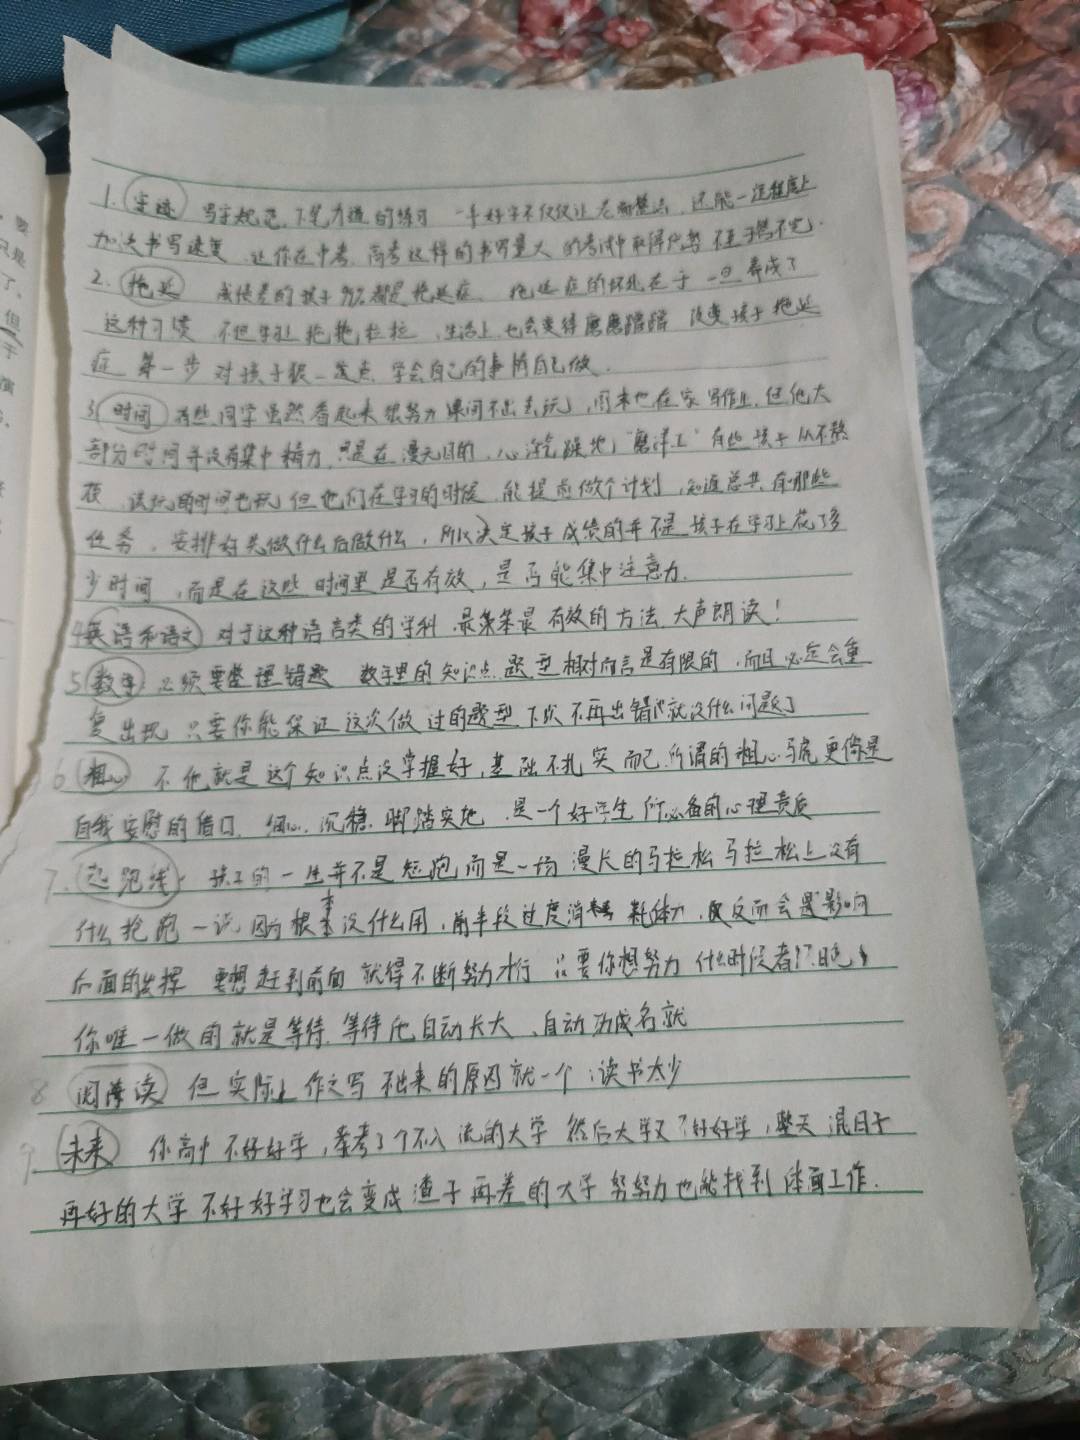 要
只是
了。
但
于
演
1. 字迹 写字规范、下笔力道的练习 一手好字不仅仅让老师整洁、还能一定程度上
加快书写速度 让你在中考、高考这样的书写量大的考试中取得优势 不至于写不完.
2. 拖延 成绩差的孩子99%都是拖延症、拖延症的坏处在于 一旦养成了
这种习惯 不但学习上拖拖拉拉、生活上也会变得磨磨蹭蹭 改变孩子拖延
症 第一步 对孩子狠一点 学会自己的事情自己做.
3 时间 有些同学虽然看起来很努力 课间不出去玩,周末也在家写作业,但他大
部分时间并没有集中精力、只是在漫无目的、心 地,"磨洋工"有些孩子从不熬
夜、该玩的时间也玩,但他们在学习的时候、能提前做个计划、知道总共有哪些
任务、安排好先做什么后做什么,所以决定孩子成绩的并不是孩子在学习上花了多
少时间,而是在这些时间里是否有效,是否能集中注意力.
4英语和语文 对于这种语言类的学科、最笨最有效的方法、大声朗读!
5 数学 必须要整理错题 数学里的知识点、题型相对而言是有限的、而且必定会重
复出现 只要你能保证这次做过的题型下次不再出错就没什么问题了
6 粗心 不他就是这个知识点没掌握好,基础不扎实而已.所谓的粗心马虎更像是
自我安慰的借口、细心、沉稳、脚踏实地、是一个好学生所必备的心理素质
7. 起跑线: 孩子的一生并不是短跑,而是一场漫长的马拉松 马拉松上没有
什么抢跑一说 因为根本没什么用,前半段过度消耗体力,反而会影响
后面的发挥 要想赶到前面 就得不断努力才行 只要你想努力 什么时候者不晚
你唯一做的就是等待、等待他自动长大、自动功成名就
8 阅读 但实际上作文写不出来的原因就一个:读书太少
9. 未来 你高中不好好学,考了个不入流的大学 然后大学又不好好学,整天混日子
再好的大学 不好好学习也会变成渣子 再差的大学 努努力也能找到体面工作.